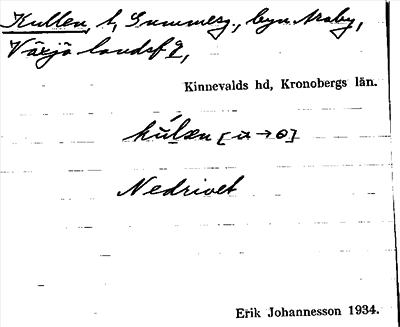 Kullen, t, Gummesg., byn Araby,
Växjö landsf g,
Kinnevalds hd, Kronobergs län.
kúlæn [u → ɵ]
Nedrivet
Erik Johannesson 1934.